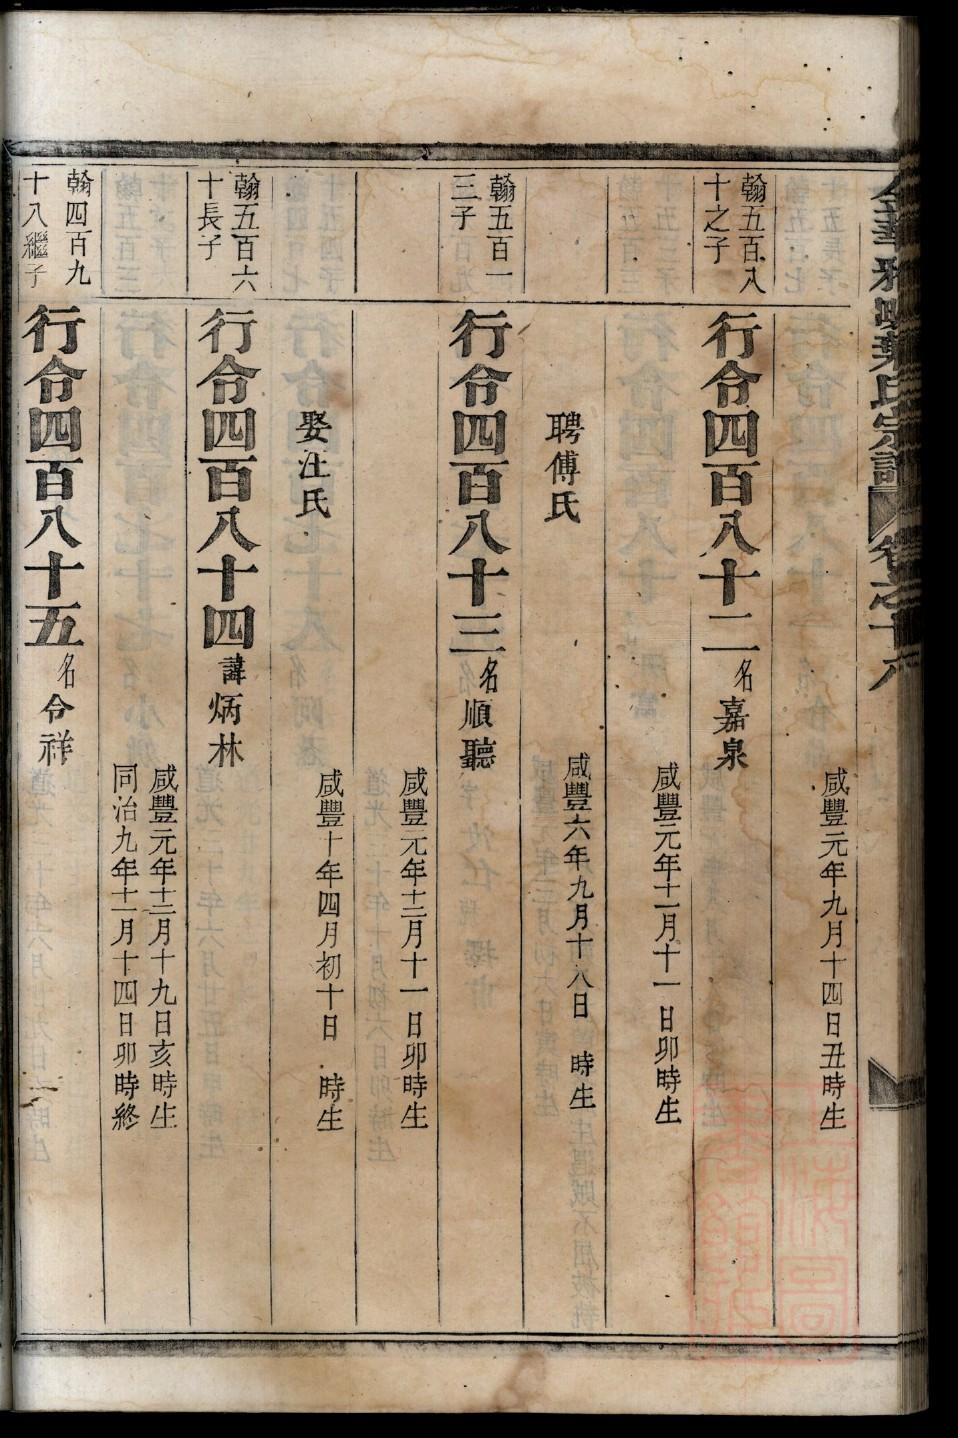 金華雅畈葉氏宗譜 卷之十八
咸豐元年九月十四日丑時生
翰五百八
十之子
行令四百八十二 名嘉泉
咸豐元年十一月十一日卯時生
聘傅氏
咸豐六年九月十八日 時生
翰五百一
三子
行令四百八十三 名順聽
咸豐元年十二月十一日卯時生
娶汪氏
咸豐十年四月初十日 時生
翰五百六
十長子
行令四百八十四 諱炳林
咸豐元年十二月十九日亥時生
同治九年十一月十四日卯時終
翰四百九
十八繼子
行令四百八十五 名令祥